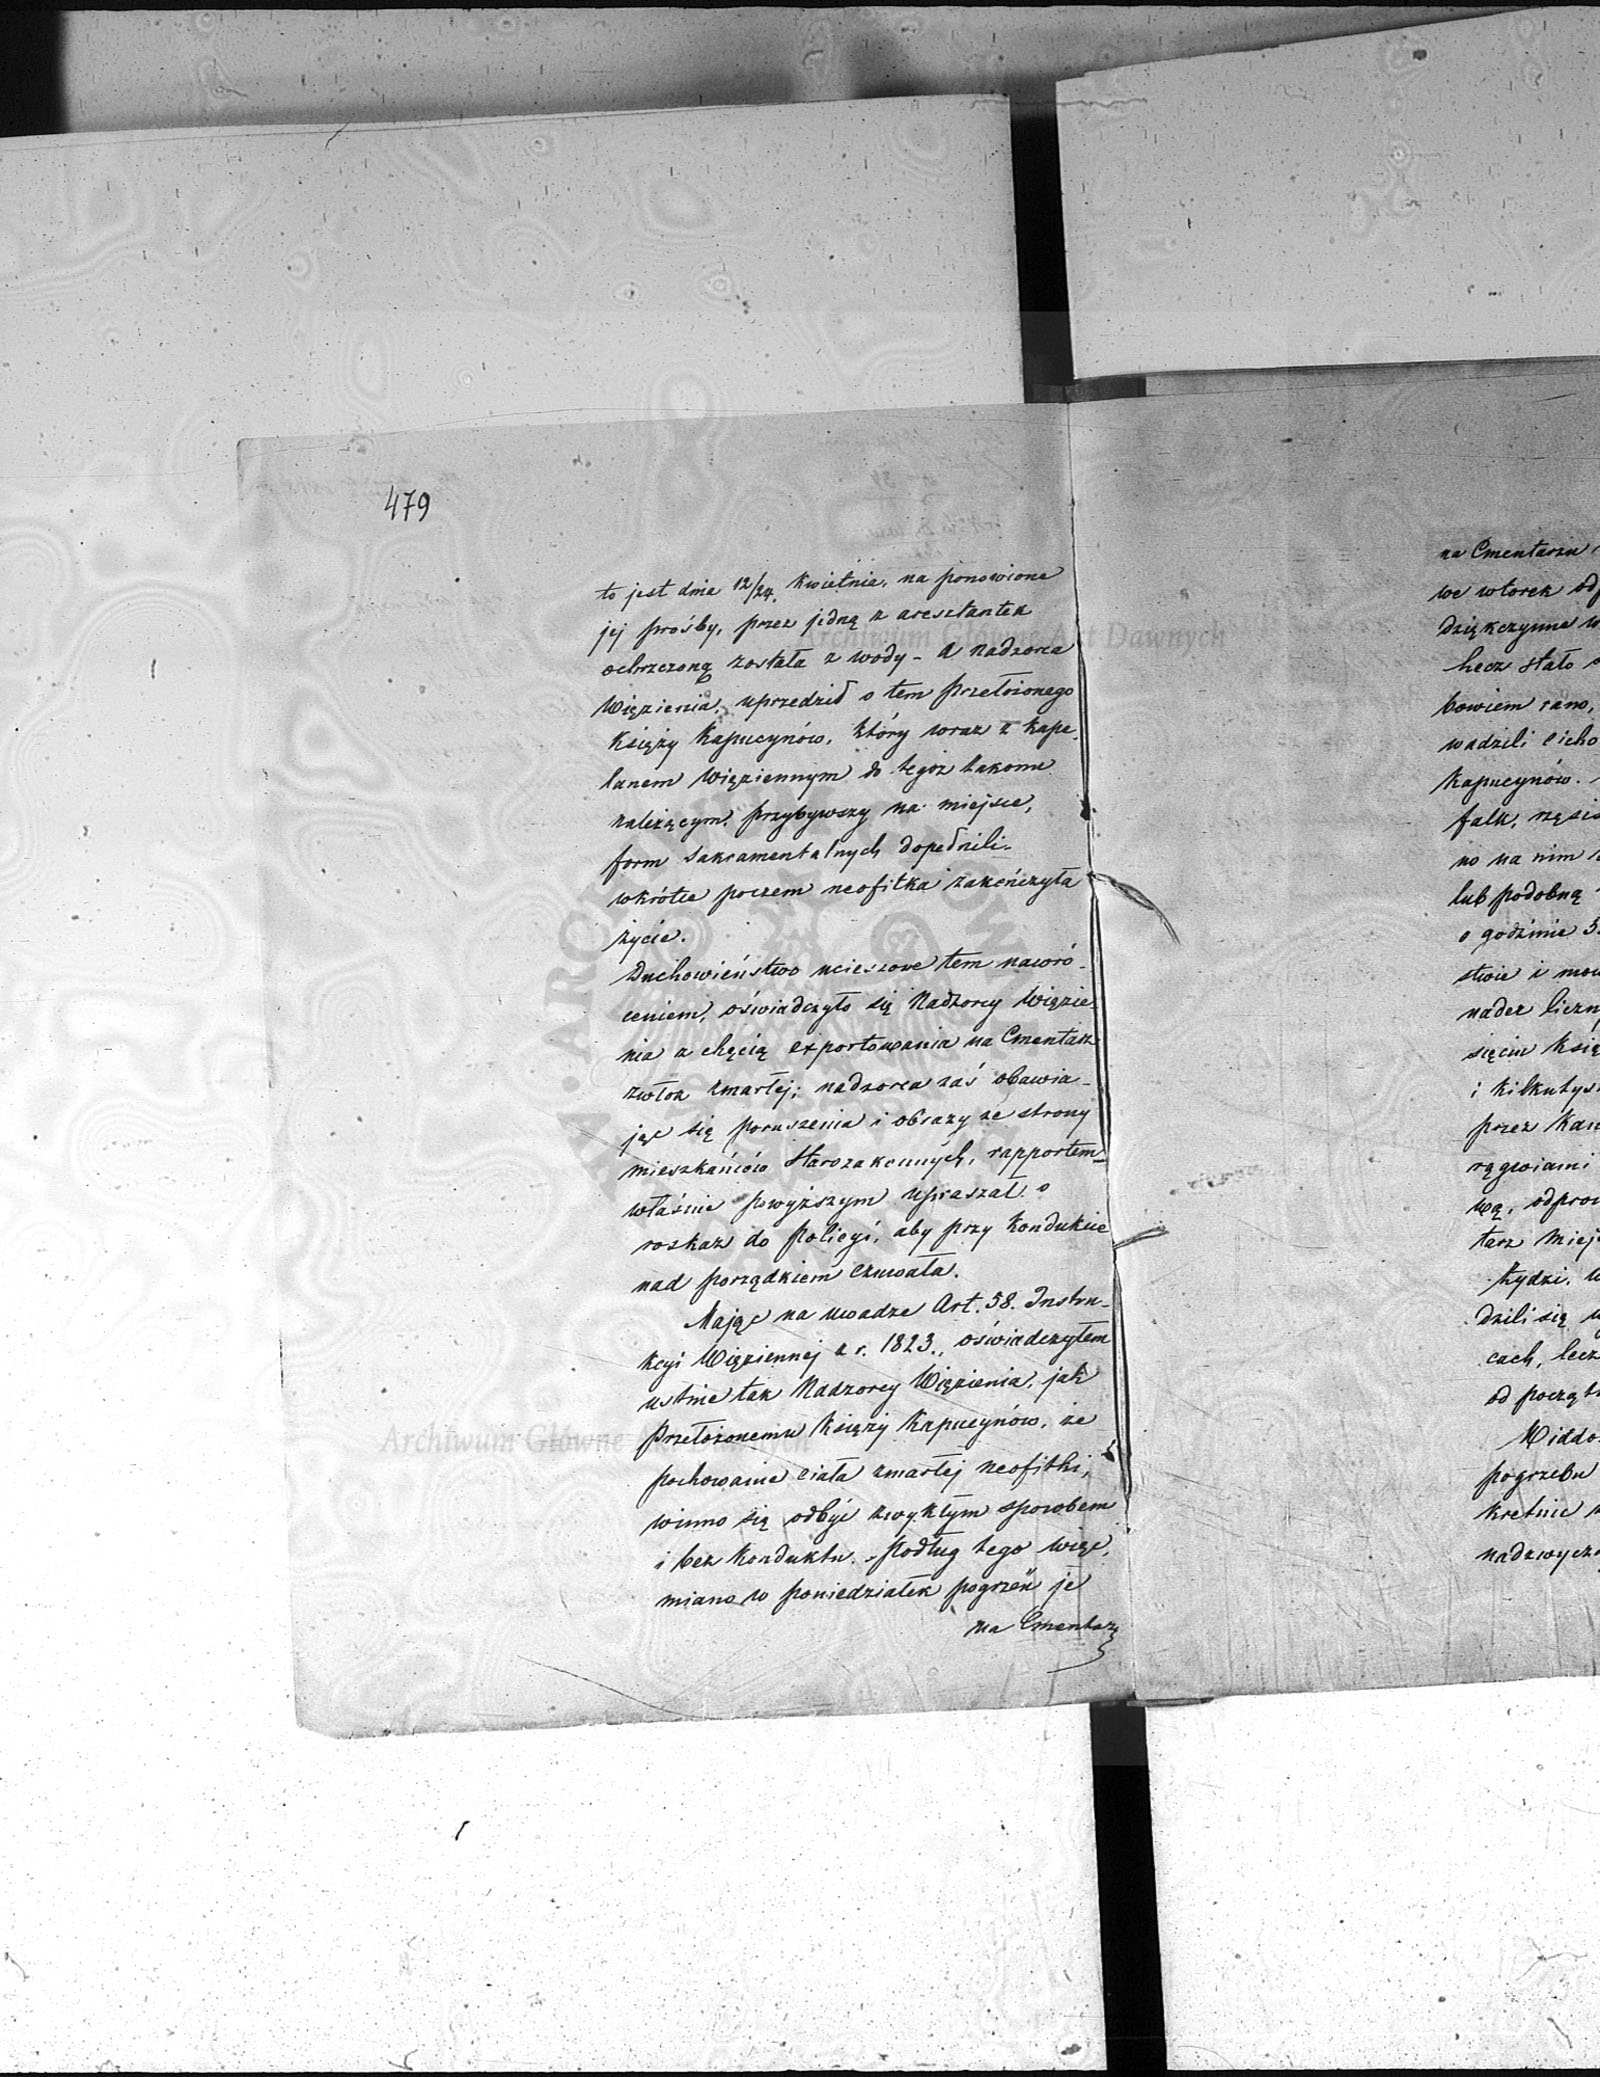 479
to jest dnia 12/24. Kwietnia, na ponowione
jej prośby, przez jedną z aresztantek
ochrzczoną została z wody - a Nadzorca
Więzienia, uprzedził o tem Przełożonego
Księży Kapucynów, który wraz z Kape-
lanem Więziennym do tegoż zakonu
należącym, przybywszy na miejsce,
form Sakramentalnych dopełnili.
wkrótce poczem neofitka zakończyła
życie.
Duchowieństwo ucieszone tem nawró-
ceniem, oświadczyło się Nadzorcy Więzie-
nia z chęcią exportowania na Cmentarz
zwłok zmarłej; nadzorca zaś obawia-
jąc się poruszenia i obrazy ze strony
mieszkańców Starozakonnych, rapportem
właśnie powyższym upraszał o
roskaz do Policyi, aby przy kondukcie
nad porządkiem czuwała.
Mając na uwadze Art. 58. Instru-
kcyi Więziennej z r. 1823., oświadczyłem
ustnie tak Nadzorcy Więzienia, jak
Przełożonemu Księży Kapucynów, że
pochowanie ciała zmarłej neofitki,
winno się odbyć zwykłym sposobem
i bez konduktu. Podług tego więc,
miano w poniedziałek pogrześć je
na Cmentarz
na Cmentarzu
we wtorek
Dziękczynne
Lecz stało
bowiem rano,
wadzili cicho
Kapucynów.
falk,
no na nim
lub podobną
o godzinie 5
stwie i
nader
sięciu
i
przez
rągwiami
wą,
tarz
Żydzi,
dzili się
cach, lecz
od
pogrzebu
kretnie
Archiwum Główne Akt Dawnych
Archiwum Główne Akt Dawnych